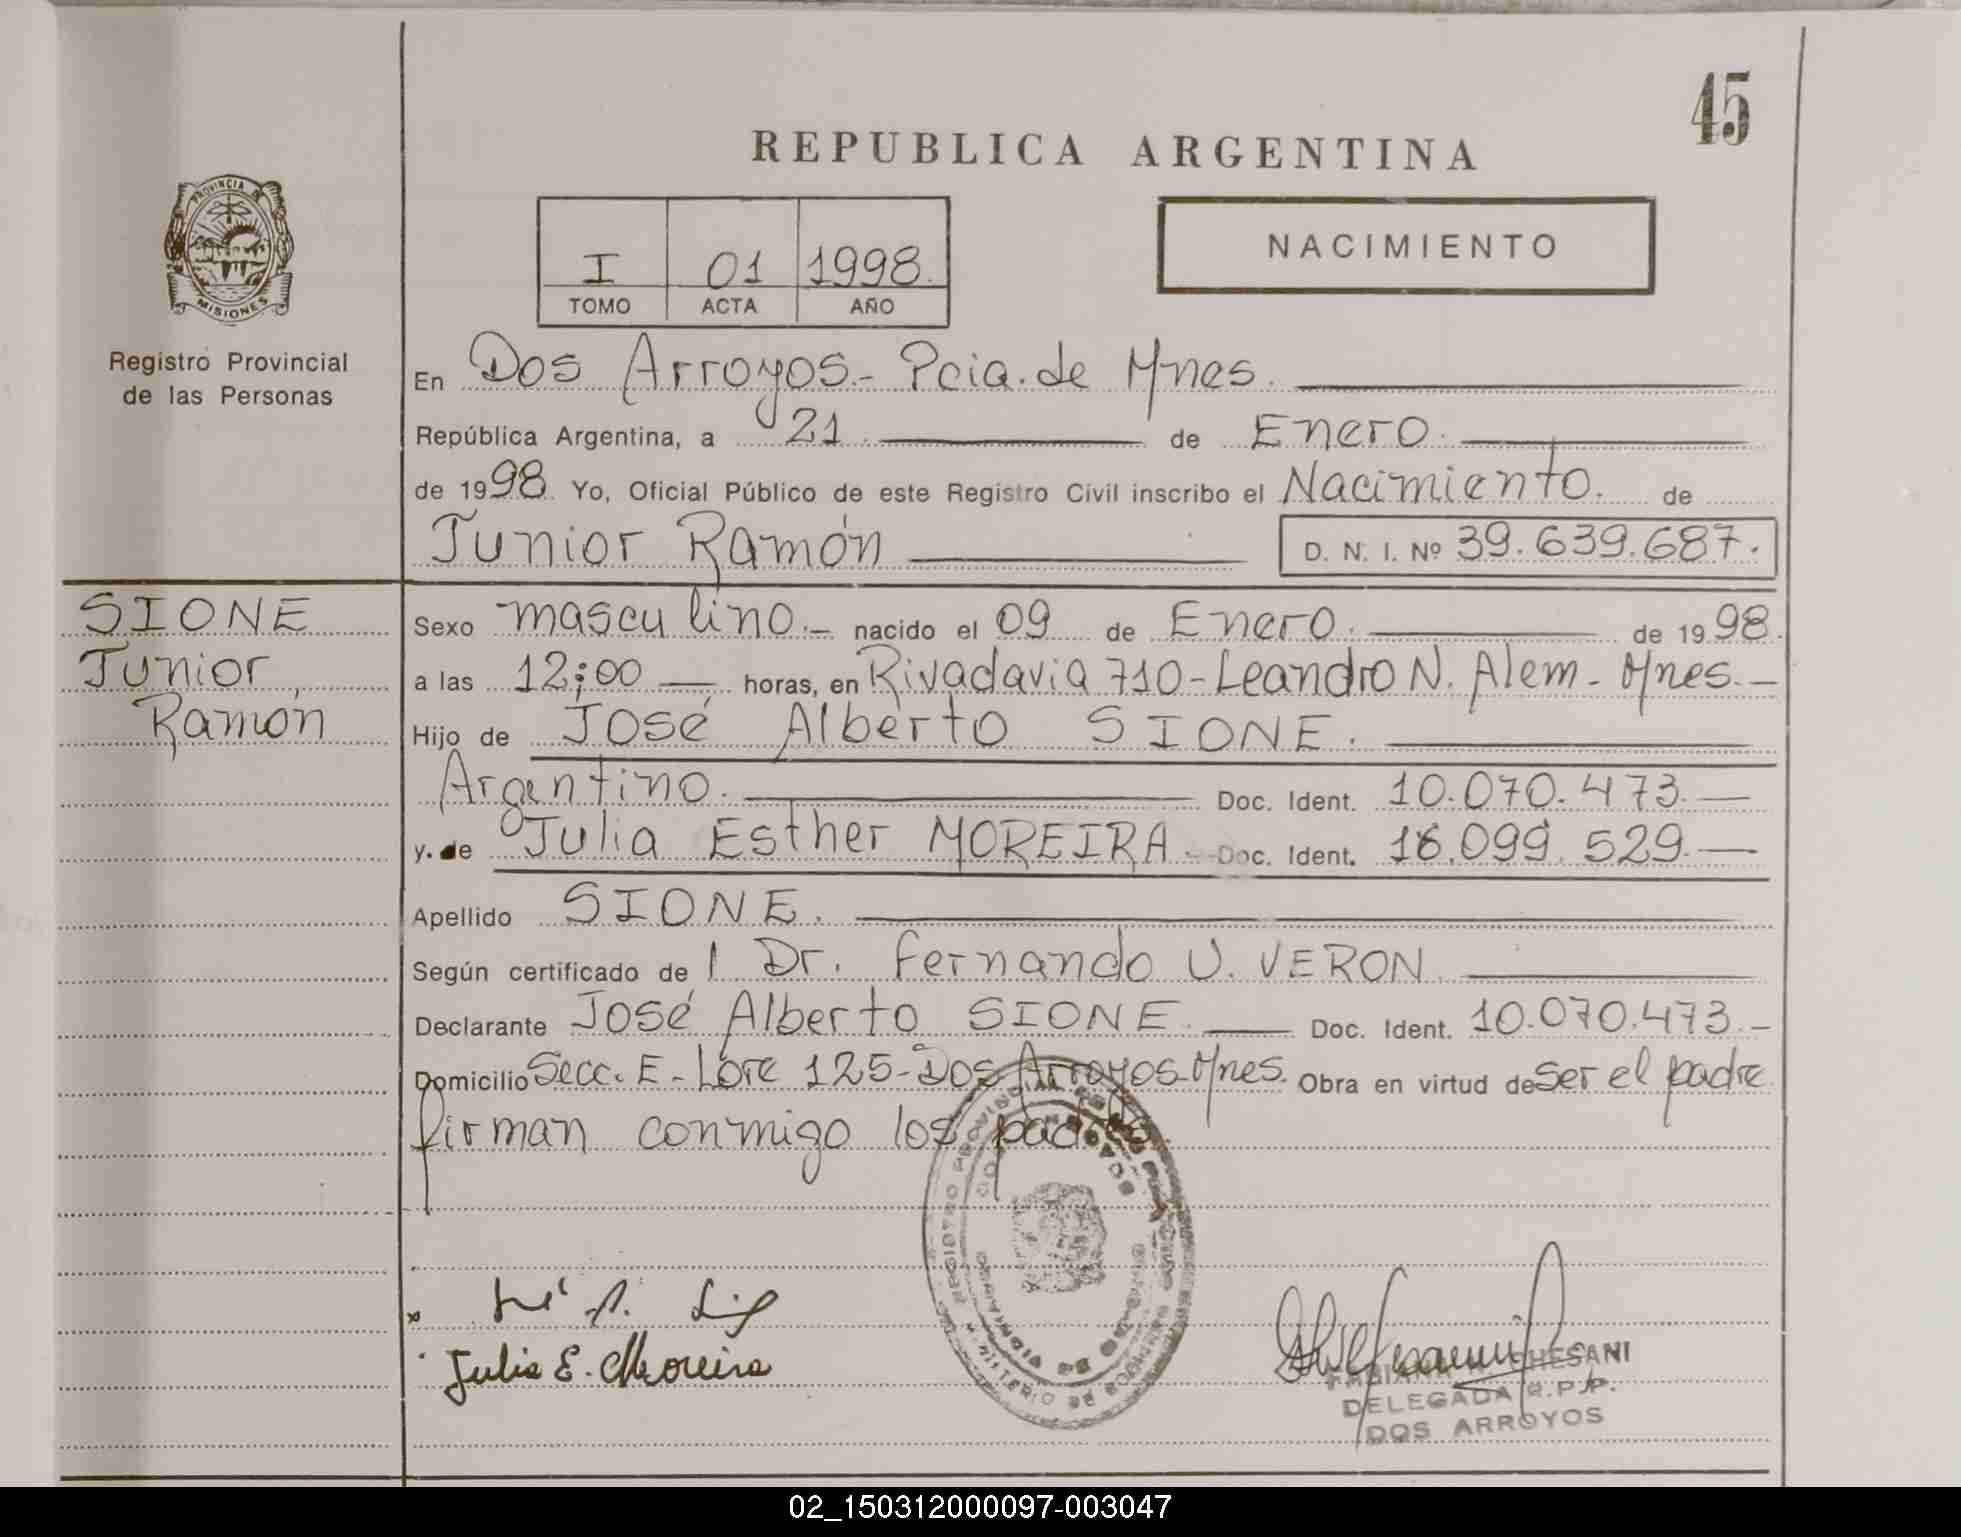 45
REPUBLICA ARGENTINA
PROVINCIA DE
MISIONES
I 01 1998.
TOMO ACTA AÑO
NACIMIENTO
Registro Provincial
de las Personas
En Dos Arroyos.- Pcia. de Mnes.
República Argentina, a 21 de Enero.
de 1998. Yo, Oficial Público de este Registro Civil inscribo el Nacimiento. de
Junior Ramón D. N. I. Nº 39.639.687.
SIONE
Junior
Ramón
Sexo masculino.- nacido el 09 de Enero. de 1998.
a las 12:00 — horas, en Rivadavia 710-Leandro N. Alem - Mnes.-
Hijo de José Alberto SIONE.
Argentino. Doc. Ident. 10.070.473.—
y. de Julia Esther MOREIRA - Doc. Ident. 16.099.529.—
Apellido SIONE.
Según certificado de l Dr. Fernando U. VERON.
Declarante José Alberto SIONE. — Doc. Ident. 10.070.473.-
Domicilio Secc. E - Lote 125-Dos Arroyos-Mnes. Obra en virtud de ser el padre
firman conmigo los padres.
REGISTRO PROVINCIAL
DOS ARROYOS
MISIONES
MINISTERIO DE GOBIERNO
Julia E. Moreira
DELEGADA R.P.P.
DOS ARROYOS
02_150312000097-003047